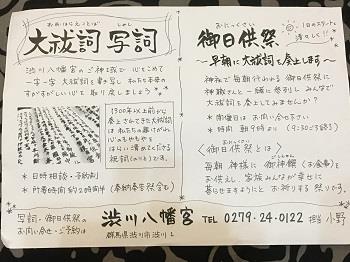 おおはらえことば しゃし
大祓詞 写詞
渋川八幡宮のご神前で 心をこめて
一字一字 大祓詞を書き写し 私たち本来の
すがすがしい心を取り戻しましょう
1300年以上前から
奏上されてきた大祓詞
は 私たちの罪けがれ
心のもやもやを
はらい清めてくださる
祝詞(のりと)です。
*日時相談・予約制
*所要時間 約2時間半(奉納奉告祭含む)
おにっくさい
御日供祭
1日のスタートを
清々しく!
~早朝に大祓詞を奏上します~
神社で毎朝行われる 御日供祭に
神職さんと一緒に参列し みんなで
大祓詞を奏上してみませんか?
*開催日は お問い合せ下さい
*時間 朝9時より (9:30ごろ終了)
《御日供祭とは》
毎朝 神様に 御神饌(お食事)を
お供えし 家族みんなが幸せに
暮らせますようにと お祈りするお祭りです。
写詞・御日供祭の
お問い合せ・ご予約は
渋川八幡宮
群馬県渋川市渋川1
TEL 0279-24-0122 担当 小野